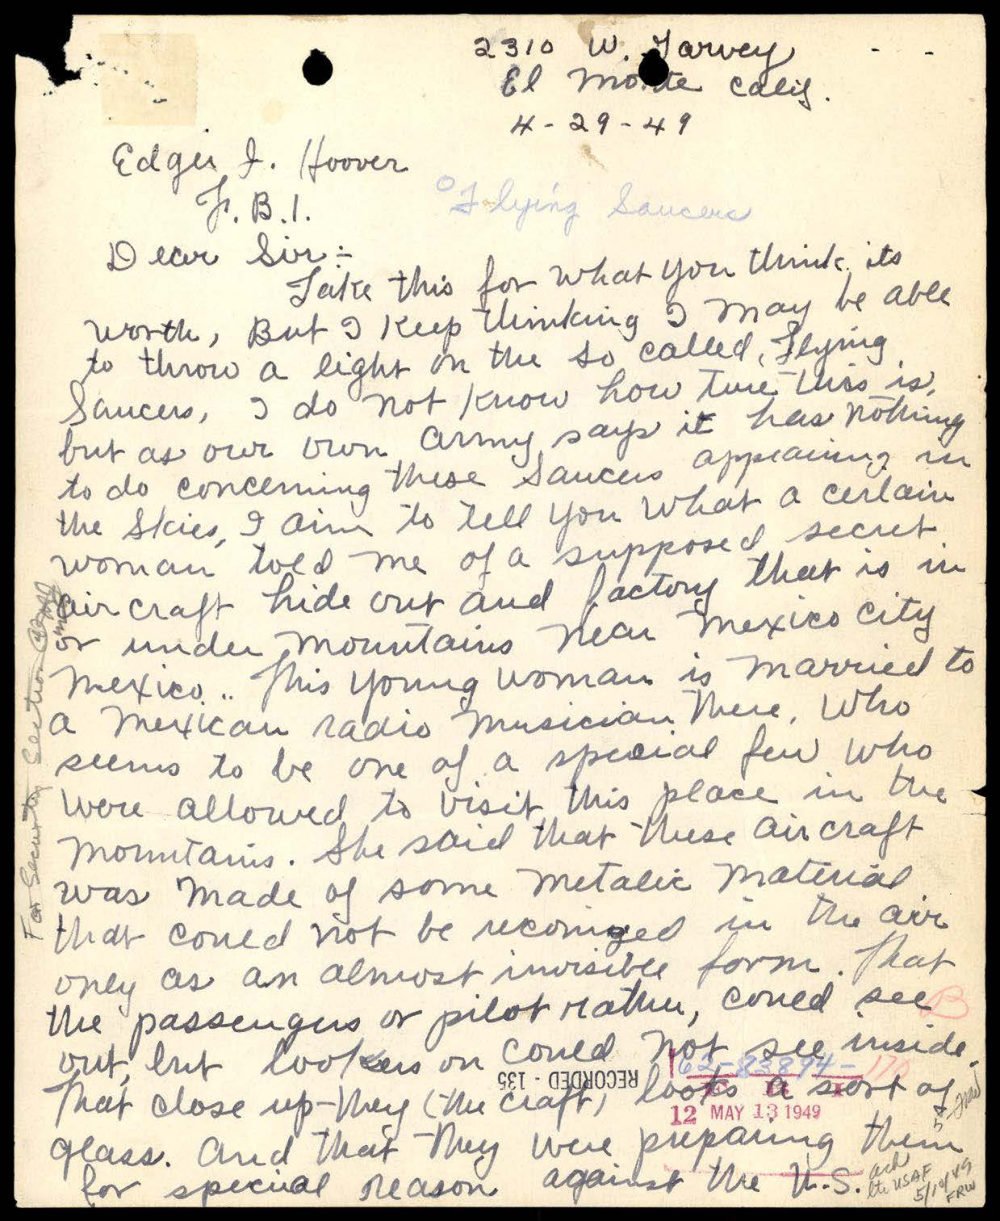 2310 W. Garvey
El Monte Calif.
4-29-49
Edger J. Hoover
F.B.I.
Flying Saucers
Dear Sir:-
Take this for what you think its
worth, But I keep thinking I may be able
to throw a light on the so called, Flying
Saucers, I do not know how true this is,
but as our own army says it has nothing
to do concerning these Saucers appearing in
the skies, I aim to tell you what a certain
woman told me of a supposed secret
air craft hide out and factory that is in
or under mountains near Mexico City
Mexico.. This young woman is married to
a Mexican radio musician there, who
seems to be one of a special few who
were allowed to visit this place in the
mountains. She said that these air craft
was made of some metalic material
that could not be reconized in the air
only as an almost invisible form. That
the passengers or pilot rather, could see
out, but lookers on could not see inside.
That close up-they (the craft) looks a sort of
glass. And that they were preparing them
for special reason against the U.S.
For Security Section
B
62-83894-170
F B I
12 MAY 13 1949
RECORDED - 135
ack
ltr USAF
5/10/49
FRW